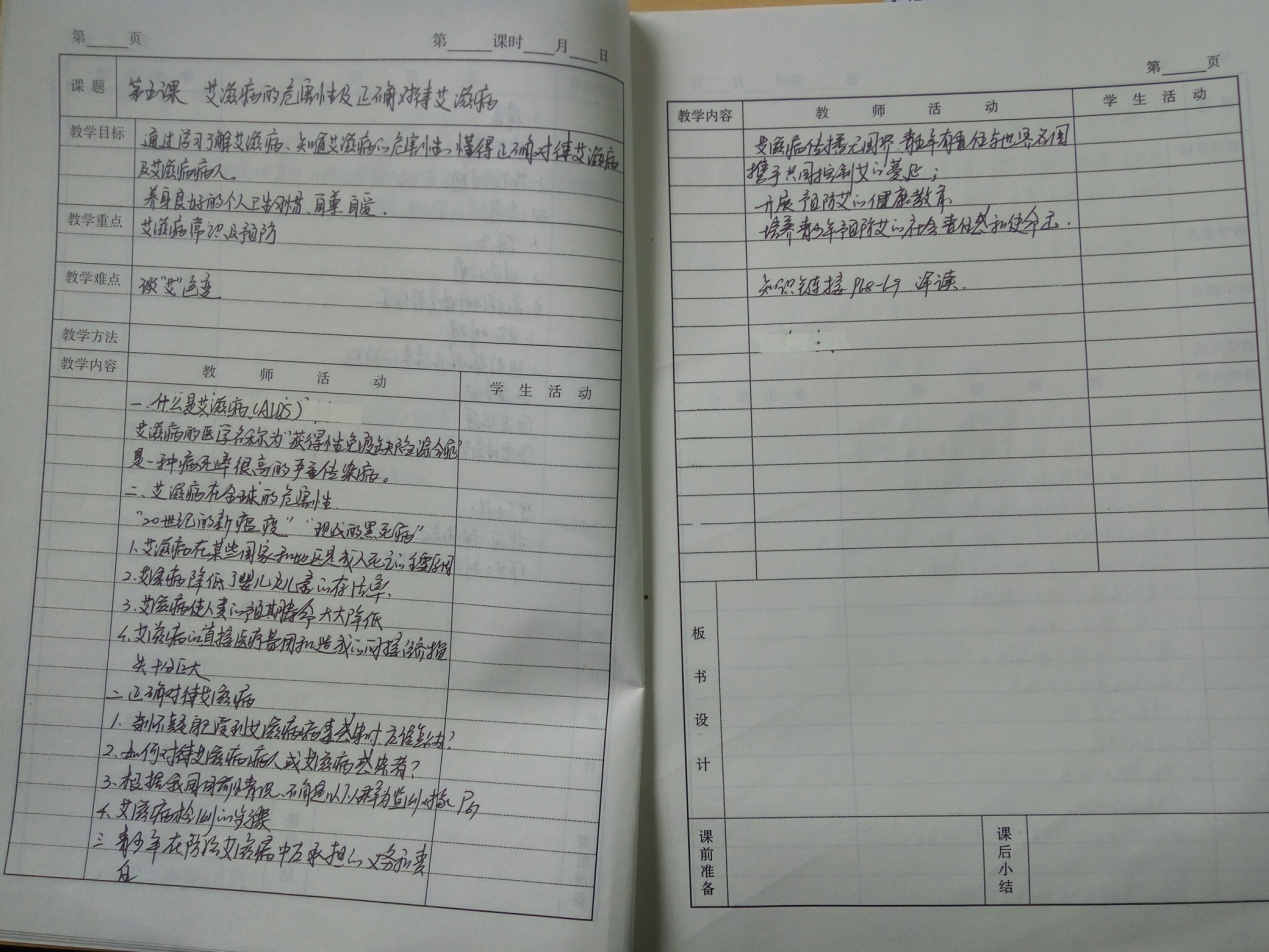 第____页
第____课时____月____日
课题 第五课 艾滋病的危害性及正确对待艾滋病
教学目标 通过学习了解艾滋病、知道艾滋病的危害性、懂得正确对待艾滋病
及艾滋病病人。
养身良好的个人卫生习惯、自尊自爱.
教学重点 艾滋病常识及预防
教学难点 谈“艾”色变
教学方法
教学内容 教师活动 学生活动
一、什么是艾滋病(AIDS)
艾滋病的医学名称为“获得性免疫缺陷综合症”
是一种病死率很高的严重传染病。
二、艾滋病在全球的危害性
“20世纪的新瘟疫” “现代的黑死病”
1、艾滋病在某些国家和地区是成人死亡的主要原因
2、艾滋病降低了婴儿及儿童的存活率.
3、艾滋病使人类的预期寿命大大降低
4、艾滋病的直接医疗费用和造成的间接经济损
失十分巨大
二、正确对待艾滋病
1、有怀疑自己受到艾滋病病毒感染时应该怎么办?
2、如何对待艾滋病病人或艾滋病感染者?
3、根据我国目前情况、不确定以下人群为监测对象 P67
4、艾滋病检测的步骤
三、青少年在防治艾滋病中应承担的义务和责
任
第____页
教学内容 教师活动 学生活动
艾滋病传播无国界、青年有责任与世界各国
携手共同控制艾的蔓延;
开展预防艾的健康教育
培养青少年预防艾的社会责任感和使命感.
知识链接 P68-69 译读.
板书设计
课前准备
课后小结